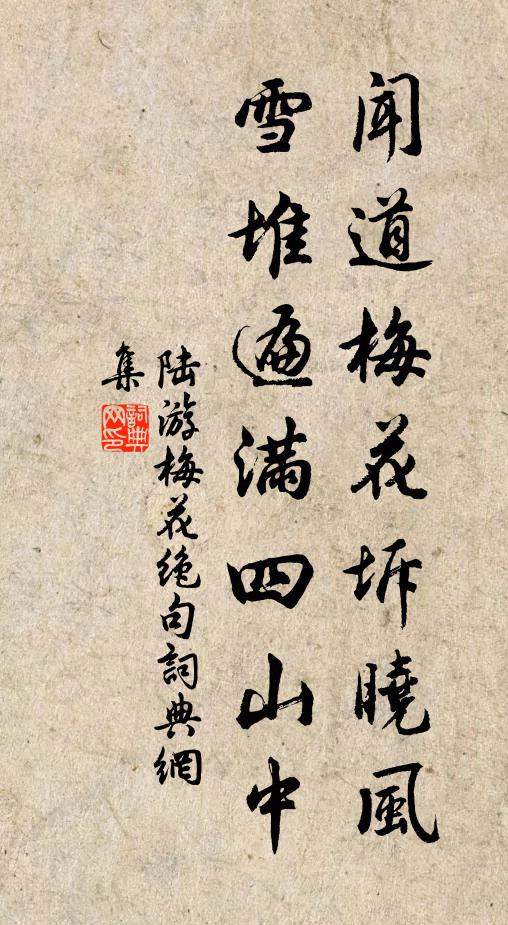 聞道梅花坼曉風
雪堆遍滿四山中
陆游梅花绝句詞典網
集
詞典
网印